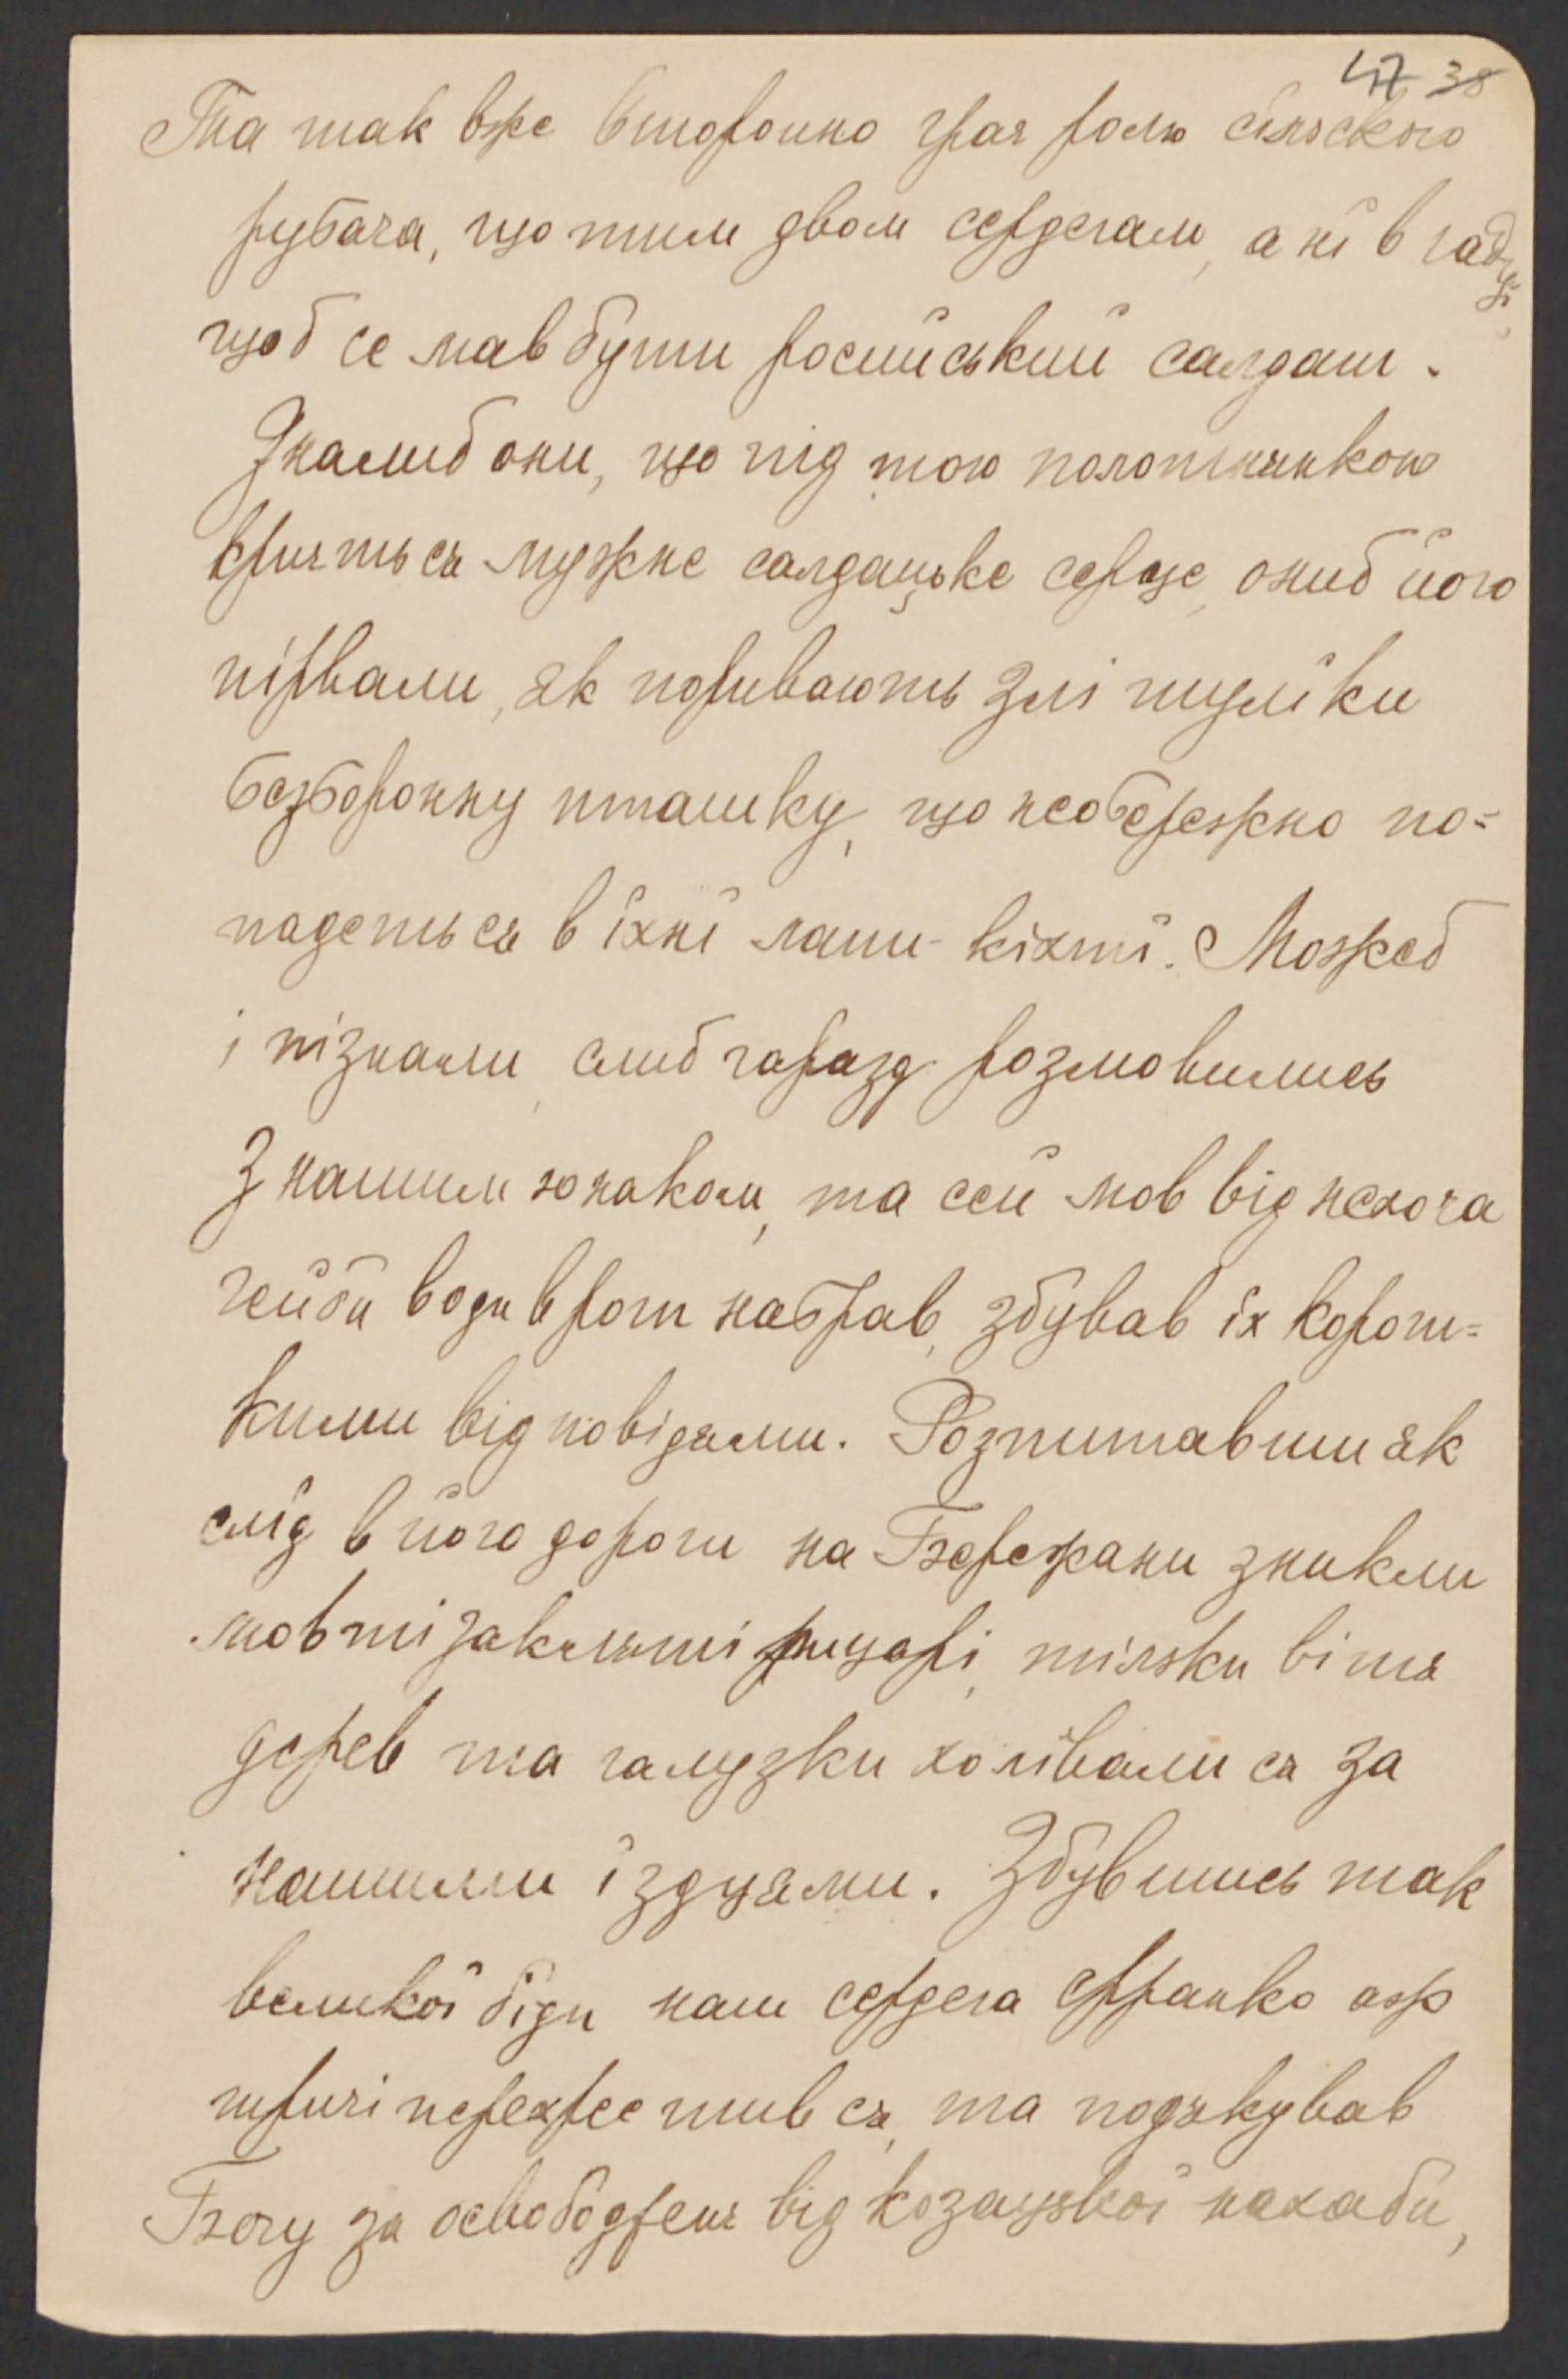 47 38
Та так вже второпно грав ролю сільского
рубача, що тим двом сердегам, а ні в гадці
щоб се мав бути росийський салдат.
Зналиб они, що під тою полотнянкою
криєть ся мужнє салдацьке серце, ониб його
пірвали, як поривають злі шуліки
безборонну пташку, що необережно по=
падеть ся в їхні лапи - кіхті. Можеб
і пізнали, слиб гаразд розмовились
з нашим юнаком, та сей мов від нехоча
гейби води в рот набрав, збував їх корот=
кими відповідями. Розпитавши як
слід в його дороги на Бережани зникли
мов ті закляті рицарі, тілько вітя
дерев та галузки холівали ся за
нашими їздцями. Збувшись так
великої біди наш сердега Франко аж
тричі перехрестив ся, та подякував
Богу за освободженє від козацької нахаби,